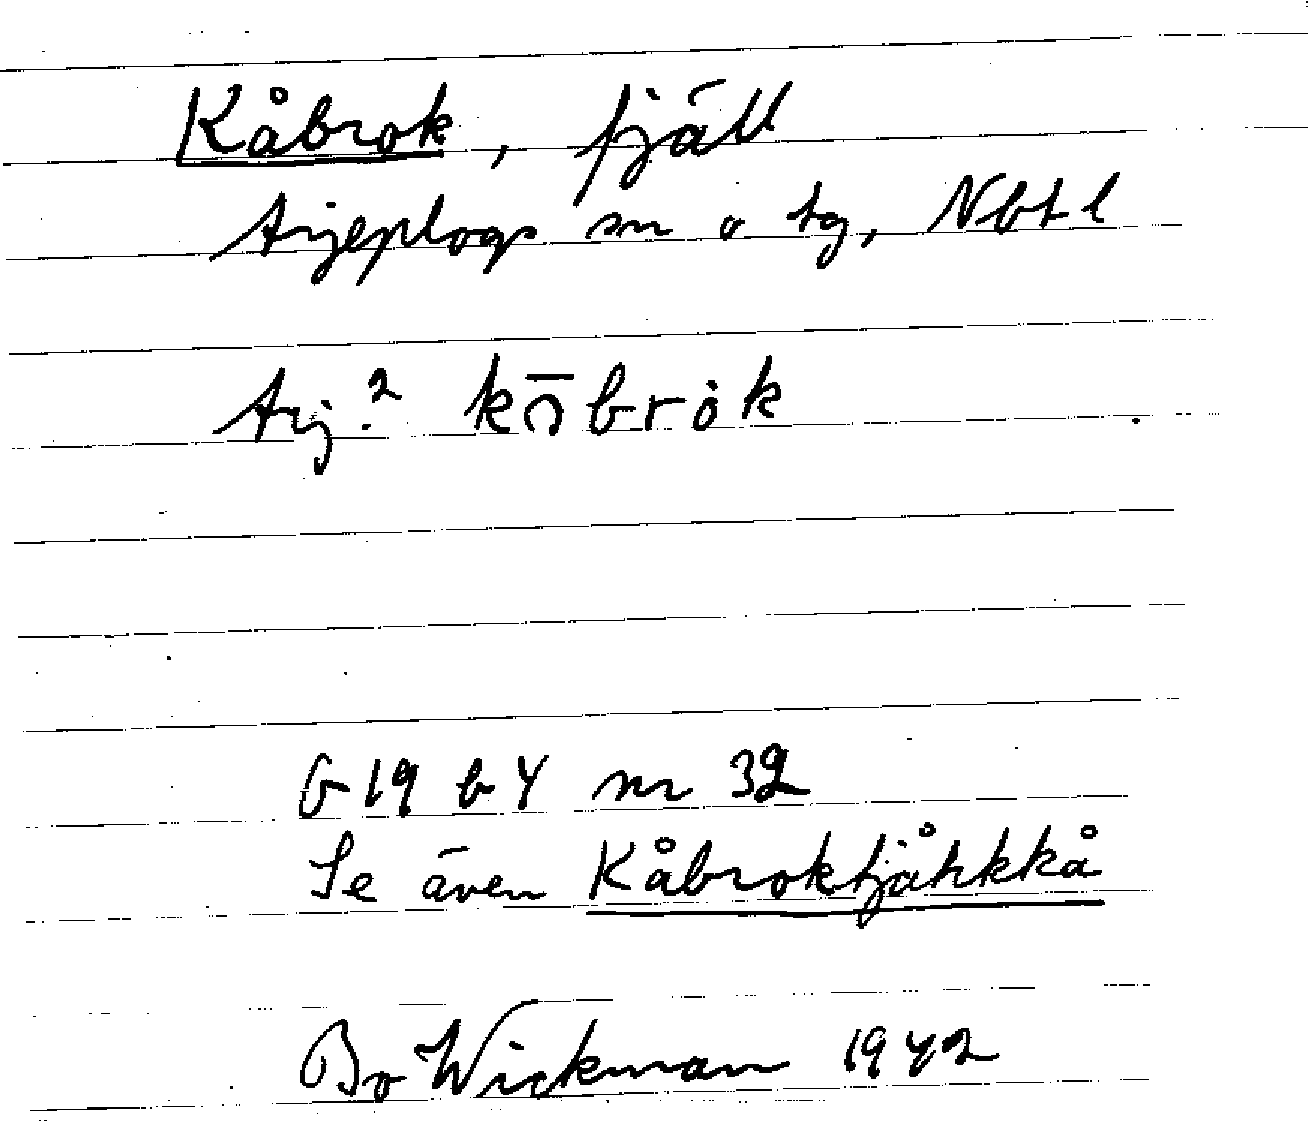 Kåbrok, fjäll
Arjeplogs sn o tg, Nbtl
Arj.² kō̑brok
G 19 b 4 nr 32
Se även Kåbroktjåhkkå
Bo Wickman 1942